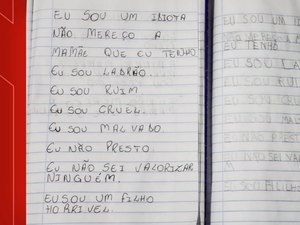 EU SOU UM IDIOTA
NÃO MEREÇO A
MAMÃE QUE EU TENHO
EU SOU LADRÃO.
EU SOU RUIM.
EU SOU CRUEL.
EU SOU MALVADO
EU NÃO PRESTO.
EU NÃO SEI VALORIZAR
NINGUÉM.
EU SOU UM FILHO
HORRIVEL.
EU SOU UM
EU TENHO
EU SOU
EU SOU
EU SOU
EU SOU
EU NÃO